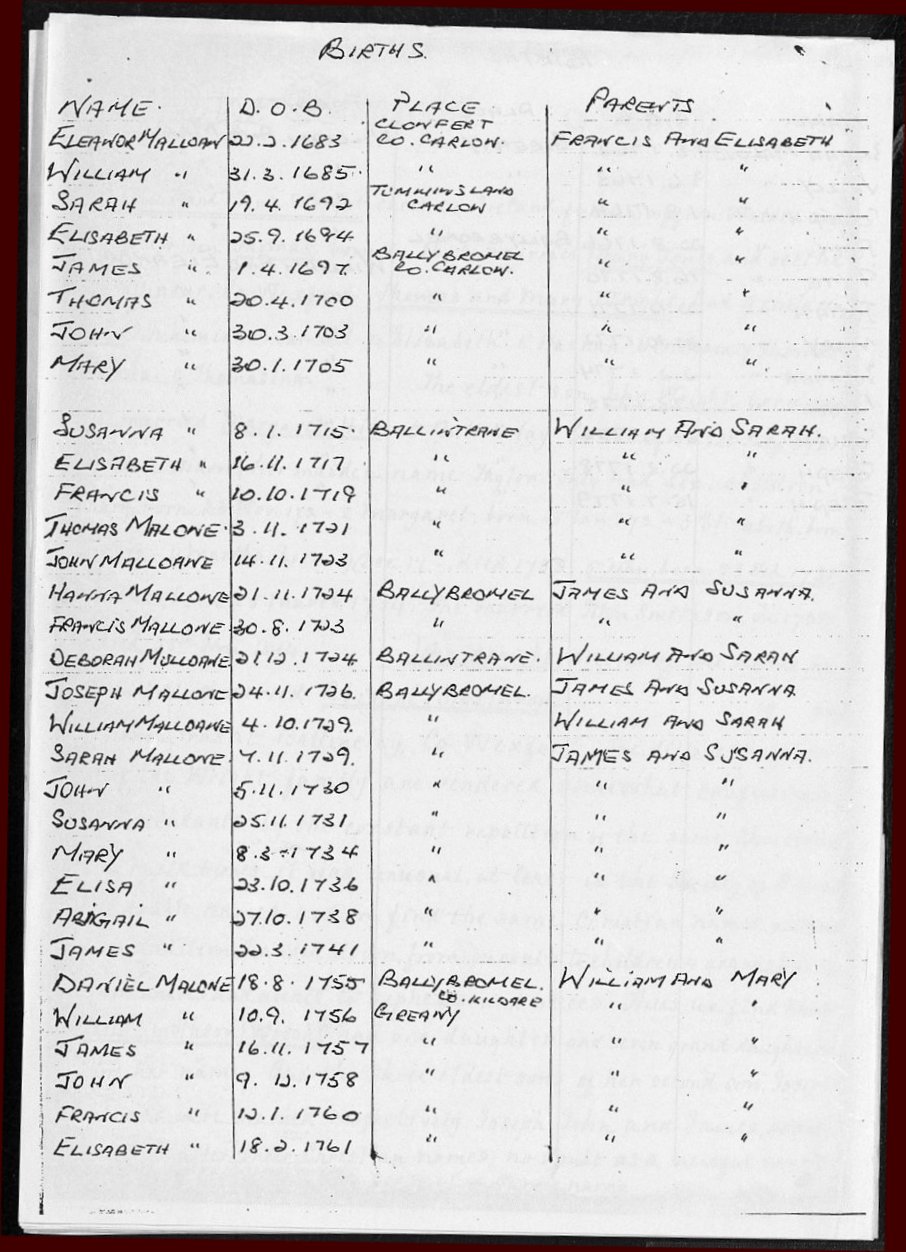 BIRTHS.
NAME. D.O.B. PLACE PARENTS
CLONFERT
ELEANOR MALLOAN 22.2.1683 CO. CARLOW. FRANCIS AND ELISABETH
WILLIAM " 31.3.1685. " " "
TUMMINSLAND
SARAH " 19.4.1692 CARLOW " "
ELISABETH " 25.9.1694 " " "
BALLYBROMEL
JAMES " 1.4.1697 CO. CARLOW. " "
THOMAS " 20.4.1700 " " "
JOHN " 30.3.1703 " " "
MARY " 30.1.1705 " " "
SUSANNA " 8.1.1715 BALLINTRANE WILLIAM AND SARAH.
ELISABETH " 16.11.1717 " " "
FRANCIS " 10.10.1719 " " "
THOMAS MALONE. 3.11.1721 " " "
JOHN MALLOANE 14.11.1723 " " "
HANNA MALLONE 21.11.1724 BALLYBROMEL JAMES AND SUSANNA.
FRANCIS MALLONE 30.8.1723 " " "
DEBORAH MULLOANE 21.12.1724 BALLINTRANE. WILLIAM AND SARAH
JOSEPH MALLONE 24.11.1726. BALLYBROMEL. JAMES AND SUSANNA
WILLIAM MALLOANE 4.10.1729 " WILLIAM AND SARAH
SARAH MALLONE 7.11.1729. " JAMES AND SUSANNA.
JOHN " 5.11.1730 " " "
SUSANNA " 25.11.1731 " " "
MARY " 8.3.1734 " " "
ELISA " 23.10.1736 " " "
ABIGAIL " 27.10.1738 " " "
JAMES " 22.3.1741 " " "
DANIEL MALONE 18.8.1755 BALLYBROMEL. WILLIAM AND MARY
CO. KILDARE
WILLIAM " 10.9.1756 GREANY " "
JAMES " 16.11.1757 " " "
JOHN " 9.12.1758 " " "
FRANCIS " 12.1.1760 " " "
ELISABETH " 18.2.1761 " " "